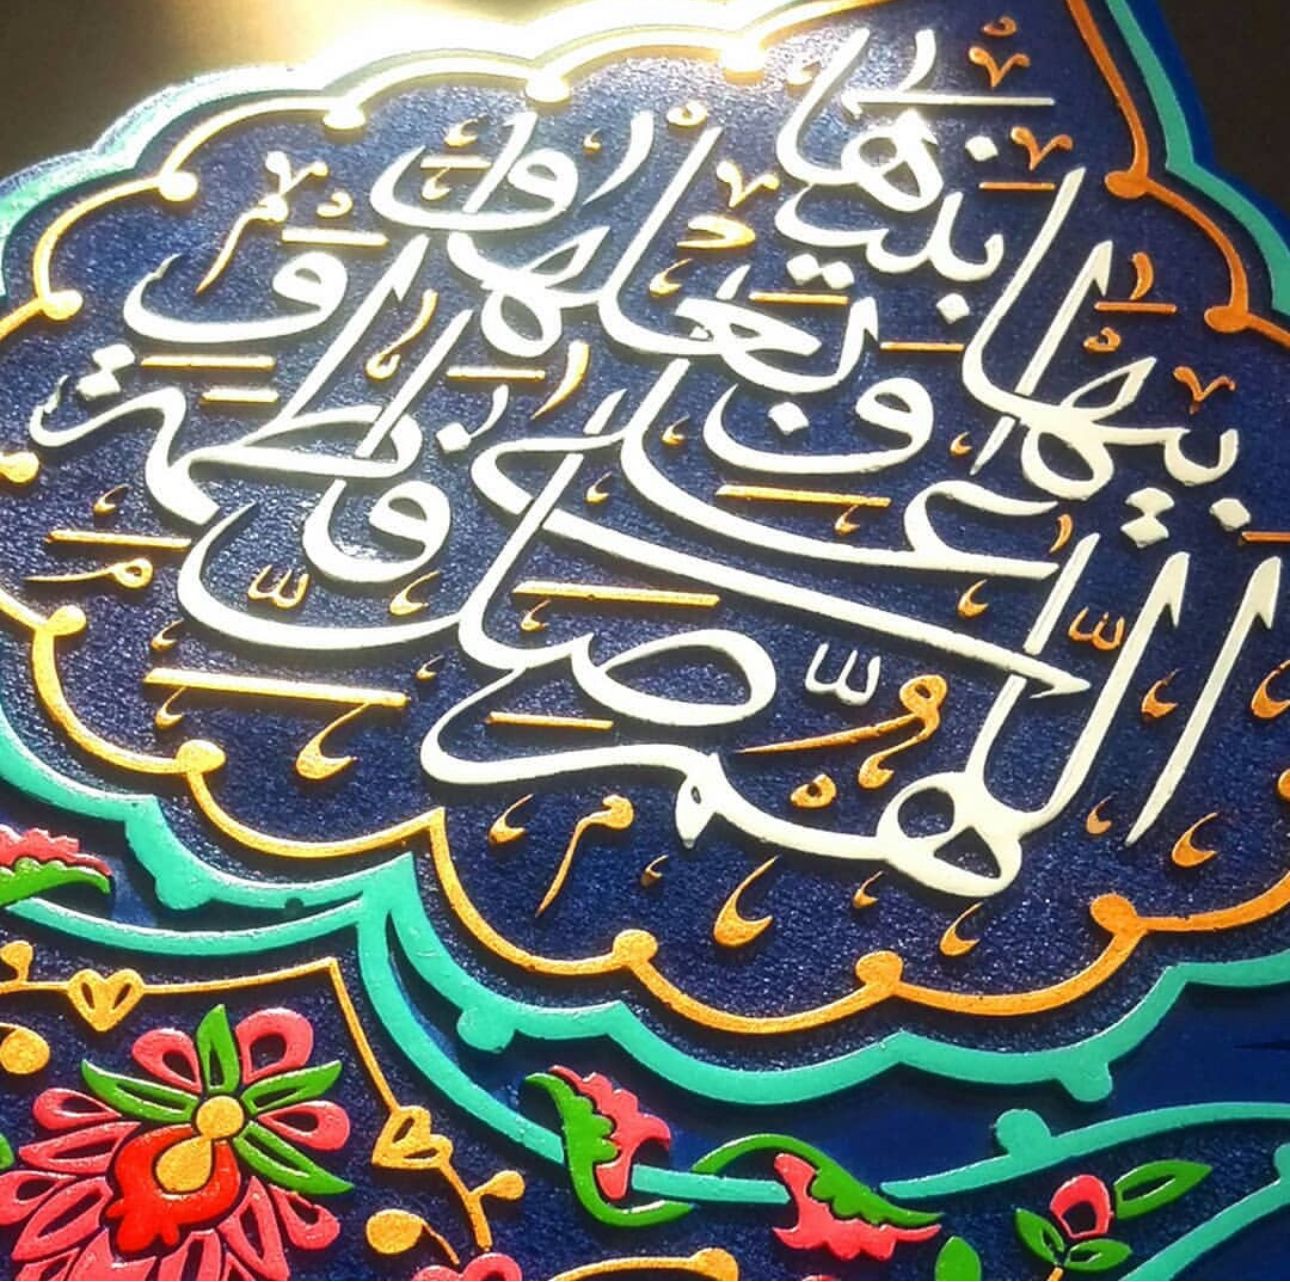 اللّهمّ صلّ علی فاطمة و ابیها و بعلها و بنیها